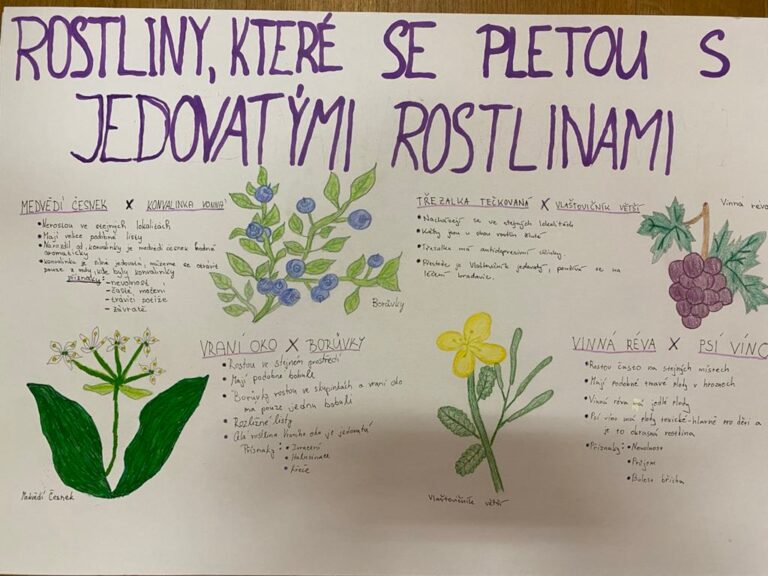 ROSTLINY, KTERÉ SE PLETOU S
JEDOVATÝMI ROSTLINAMI
MEDVĚDÍ ČESNEK X KONVALINKA VONNÁ
• Nerostou ve stejných lokalitách
• Mají velice podobné listy
• Narozdíl od konvalinky je medvědí česnek hodně
aromatický
• Konvalinka je silně jedovatá, můžeme se otrávit
pouze z vody, kde byly konvalinky
Příznaky: - nevolnost
- časté močení
- trávící potíže
- závratě
Medvědí Česnek
Borůvky
VRANÍ OKO X BORŮVKY
• Rostou ve stejném prostředí
• Mají podobné bobule
• Borůvky rostou ve skupinkách a vraní oko
má pouze jednu bobuli
• Rozličné listy
• Celá rostlina Vraního oka je jedovatá
Příznaky: • Zvracení
• Halucinace
• Křeče
TŘEZALKA TEČKOVANÁ X VLAŠTOVIČNÍK VĚTŠÍ
• Nacházejí se ve stejných lokalitách
• Květy jsou u obou rostlin žluté
• Třezalka má antidepresivní účinky
• Přestože je Vlaštovičník jedovatý, používá se na
léčení bradavic.
Vlaštovičník větší
Vinná réva
VINNÁ RÉVA X PSÍ VÍNO
• Rostou často na stejných místech
• Mají podobné tmavé plody v hroznech
• Vinná réva má jedlé plody
• Psí víno má plody toxické - hlavně pro děti a
je to okrasná rostlina
• Příznaky: • Nevolnost
• Průjem
• Bolest břicha